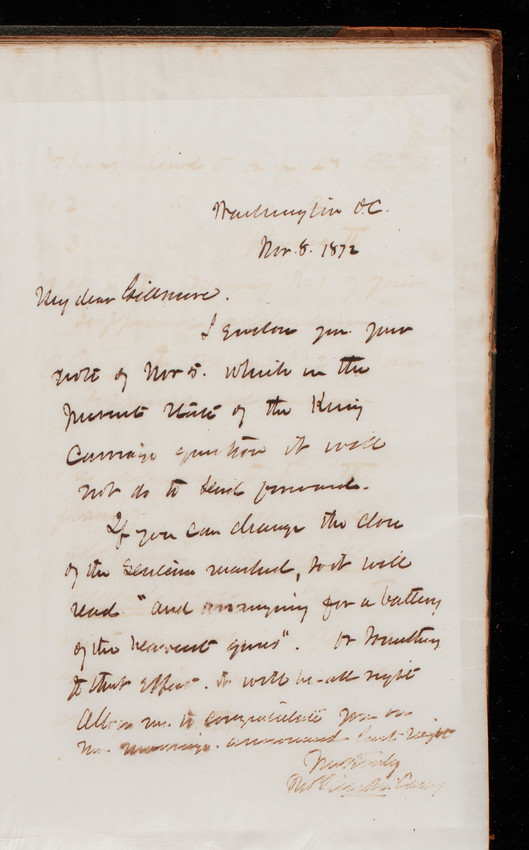 Washington D.C.
Nov. 8. 1872
My dear Gillmore.
I enclose you your
note of Nov 5. which in the
present state of the King
Carriage question it will
not do to send forward.
If you can change the close
of the sentence marked, so it will
read "and arranging for a battery
of the heaviest guns". Or something
to that effect. it will be all right
Allow me to congratulate you on
announced last night
Yrs Truly
Thos Lincoln Casey